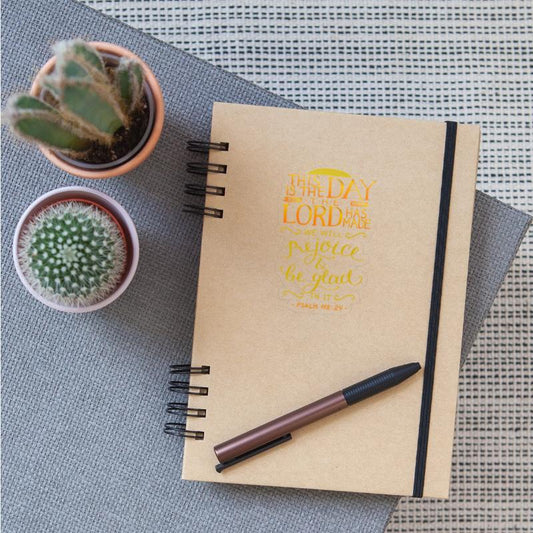 THIS
IS THE DAY
THE
LORD HAS
MADE
WE WILL
rejoice
&
be glad
IN IT
- PSALM 118:24 -